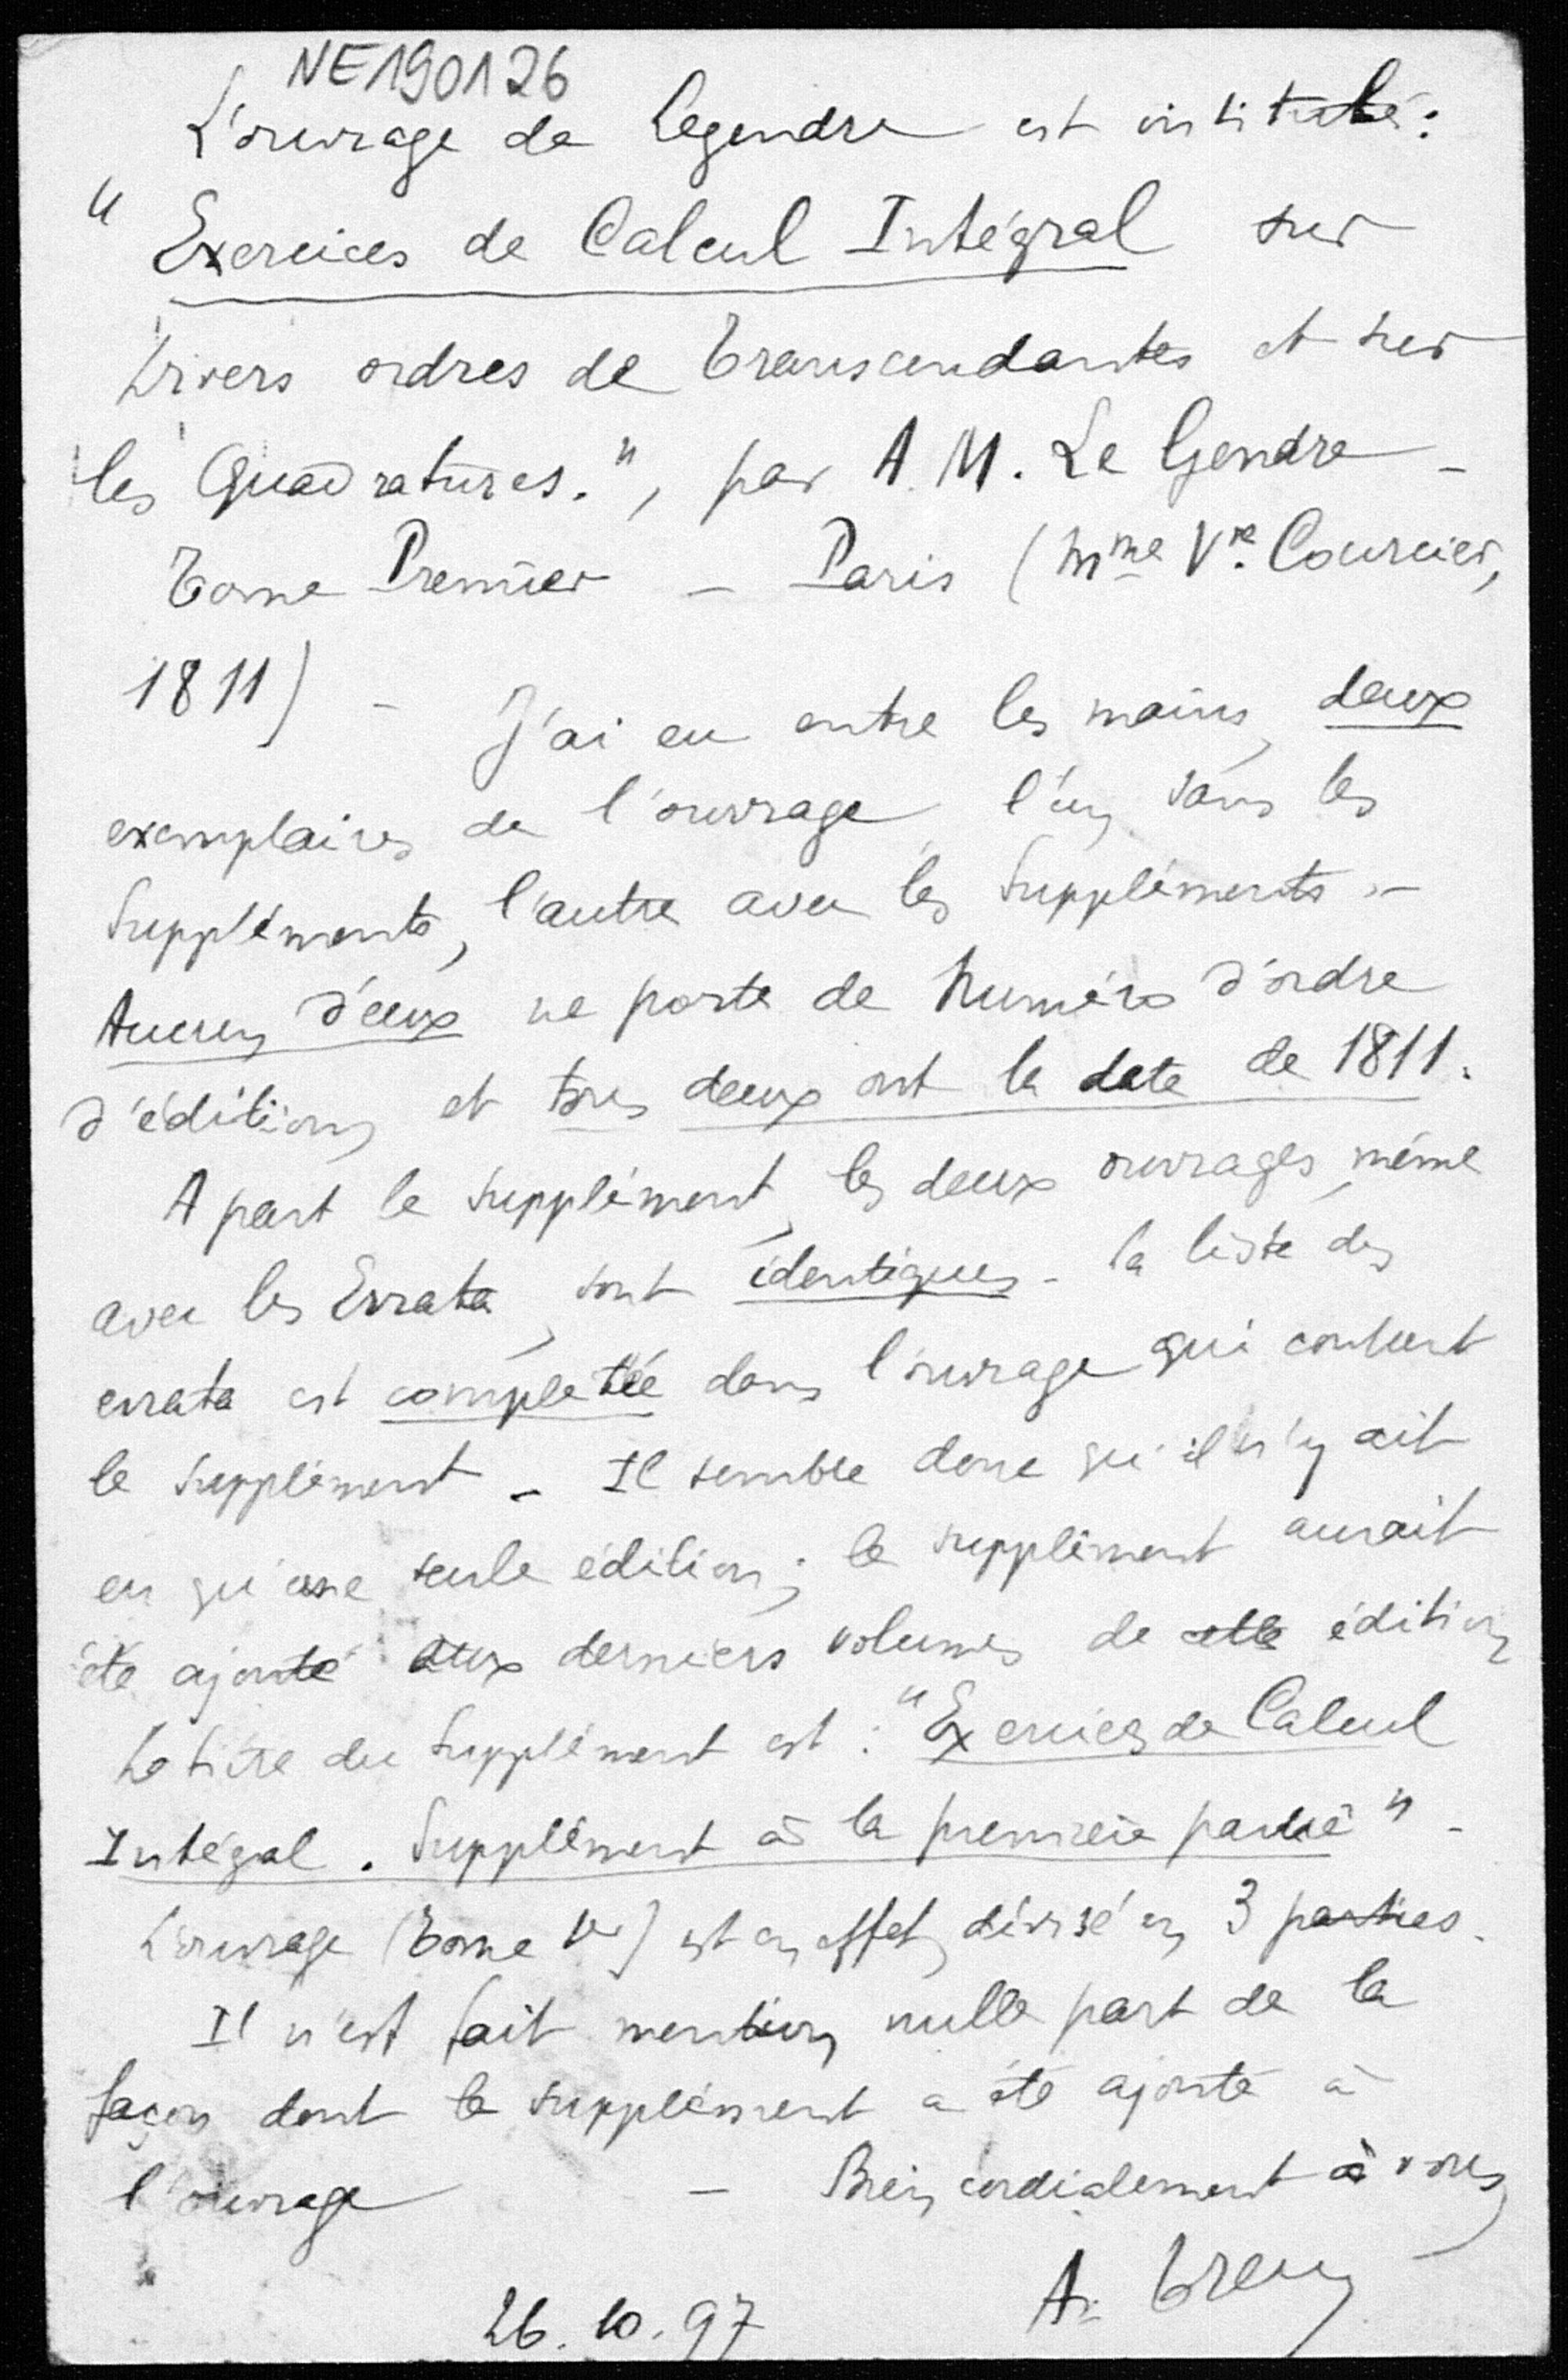 NE190126
L'ouvrage de Legendre est intitulé :
" Exercices de Calcul Intégral sur
Divers ordres de Transcendantes et sur
les Quadratures. ", par A. M. Le Gendre -
Tome Premier - Paris (Mme Ve. Courcier,
1811) - J'ai eu entre les mains, deux
exemplaires de l'ouvrage, l'un sans les
Suppléments, l'autre avec les Suppléments -
Aucun d'eux ne porte de Numéro d'ordre
d'édition, et tous deux ont la date de 1811.
A part le Supplément, les deux ouvrages, même
avec les Errata, sont identiques - la liste des
errata est complétée dans l'ouvrage qui contient
le supplément - Il semble donc qu'il n'y ait
eu qu'une seule édition ; le supplément aurait
été ajouté aux derniers volumes de cette édition
Le titre du Supplément est : " Exercices de Calcul
Intégal. Supplément à la première partie " -
L'ouvrage (Tome Ier) est en effet, divisé en 3 parties.
Il n'est fait mention nulle part de la
façon dont le supplément a été ajouté à
l'ouvrage - Bien cordialement à vous
26.10.97 A.